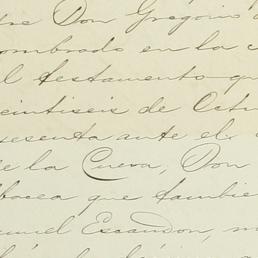 tre Don Gregorio
ombrado en la
l testamento qu
eintiseis de Octu
esenta ante el
de la Cueva, Don
lbacea que tambie
nuel Escandon, m